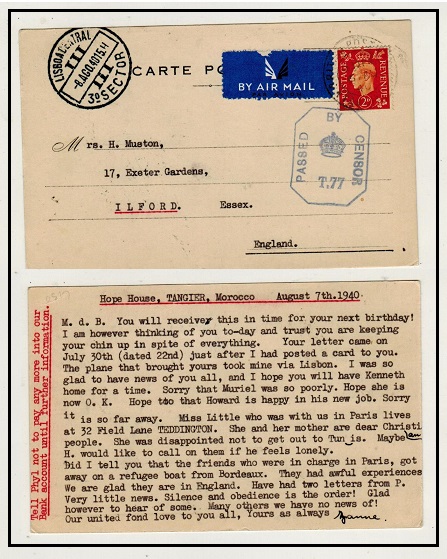 LISBOA CENTRAL
III
-8.AGO.40 15.H
3º SECTOR
CARTE PO
BY AIR MAIL
POSTAGE REVENUE
2D
PASSED BY CENSOR
T.77
Mrs. H. Muston,
17, Exeter Gardens,
ILFORD. Essex.
England.
Hope House, TANGIER, Morocco August 7th.1940.
M. d. B. You will receive this in time for your next birthday!
I am however thinking of you to-day and trust you are keeping
your chin up in spite of everything. Your letter came on
July 30th (dated 22nd) just after I had posted a card to you.
The plane that brought yours took mine via Lisbon. I was so
glad to have news of you all, and I hope you will have Kenneth
home for a time. Sorry that Muriel was so poorly. Hope she is
now O. K. Hope too that Howard is happy in his new job. Sorry
it is so far away. Miss Little who was with us in Paris lives
at 32 Field Lane TEDDINGTON. She and her mother are dear Christi
people. She was disappointed not to get out to Tunis. Maybe
H. would like to call on them if he feels lonely.
Did I tell you that the friends who were in charge in Paris, got
away on a refugee boat from Bordeaux. They had awful experiences
We are glad they are in England. Have had two letters from P.
Very little news. Silence and obedience is the order! Glad
however to hear of some. Many others we have no news of!
Our united fond love to you all, Yours as always
Tell Phyl not to pay any more into our
Bank account until further information.